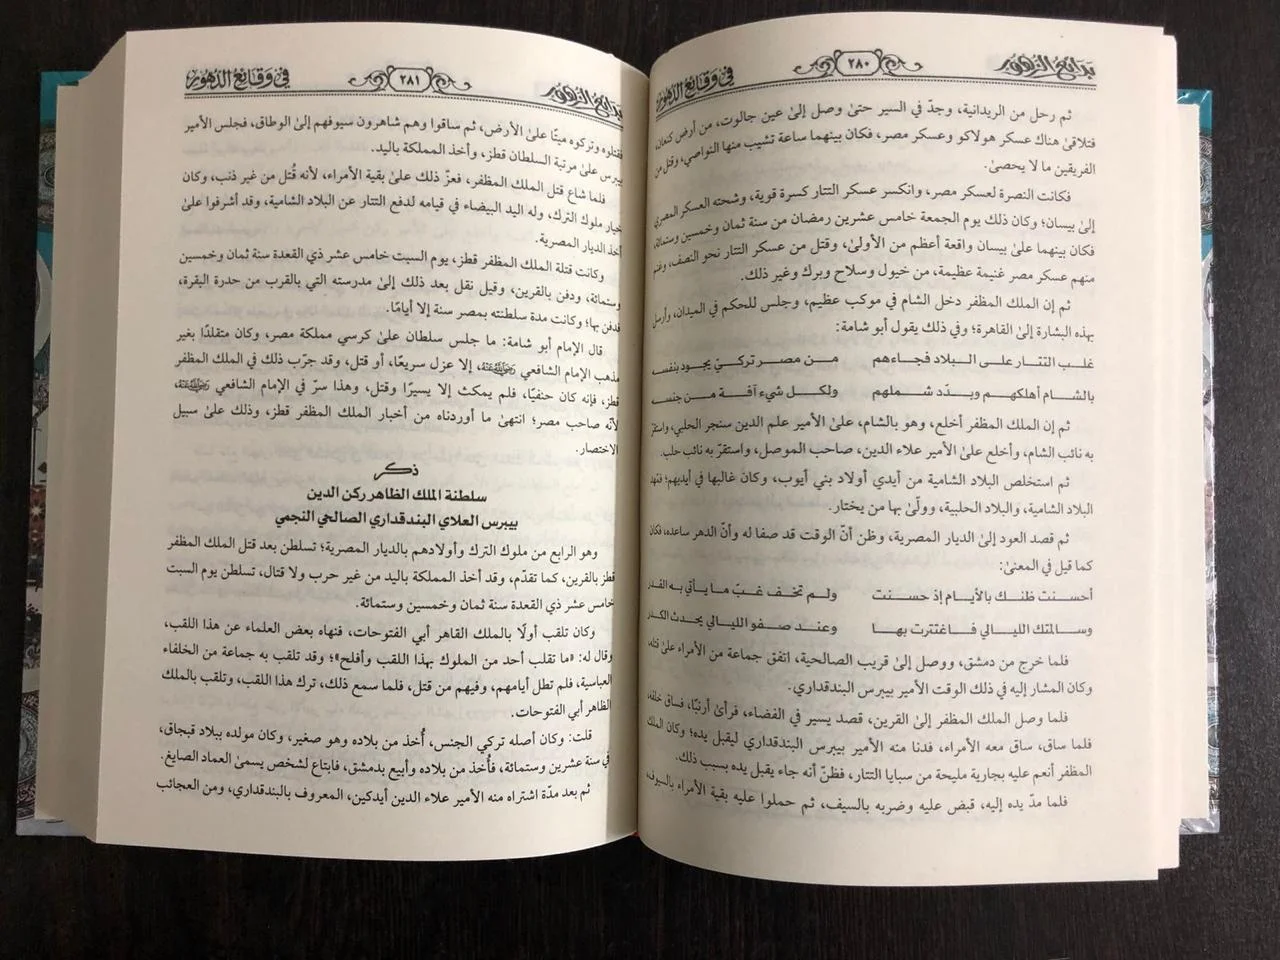 بدائع الزهور
٢٨٠
في وقائع الدهور
ثم رحل من الريدانية، وجدّ في السير حتىٰ وصل إلىٰ عين جالوت، من أرض كنعان،
فتلاقىٰ هناك عسكر هولاكو وعسكر مصر، فكان بينهما ساعة تشيب منها النواصي، وقتل من
الفريقين ما لا يحصىٰ.
فكانت النصرة لعسكر مصر، وانكسر عسكر التتار كسرة قوية، وشحته العسكر المصري
إلىٰ بيسان؛ وكان ذلك يوم الجمعة خامس عشرين رمضان من سنة ثمان وخمسين وستمائة،
فكان بينهما علىٰ بيسان واقعة أعظم من الأولىٰ، وقتل من عسكر التتار نحو النصف، وغنم
منهم عسكر مصر غنيمة عظيمة، من خيول وسلاح وبرك وغير ذلك.
ثم إن الملك المظفر دخل الشام في موكب عظيم، وجلس للحكم في الميدان، وأرسل
بهذه البشارة إلىٰ القاهرة؛ وفي ذلك يقول أبو شامة:
غلب التتار علىٰ البلاد فجاءهم من مصر تركيّ يجود بنفسه
بالشام أهلكهم وبدّد شملهم ولكل شيء آفة من جنسه
ثم إن الملك المظفر أخلع، وهو بالشام، علىٰ الأمير علم الدين سنجر الحلبي، واستقرّ
به نائب الشام، وأخلع علىٰ الأمير علاء الدين، صاحب الموصل، واستقرّ به نائب حلب.
ثم استخلص البلاد الشامية من أيدي أولاد بني أيوب، وكان غالبها في أيديهم؛ فمهد
البلاد الشامية، والبلاد الحلبية، وولّىٰ بها من يختار.
ثم قصد العود إلىٰ الديار المصرية، وظن أنّ الوقت قد صفا له وأنّ الدهر ساعده، فكان
كما قيل في المعنىٰ:
أحسنت ظنك بالأيام إذ حسنت ولم تخف غبّ ما يأتي به القدر
وسالمتك الليالي فاغتررت بها وعند صفو الليالي يحدث الكدر
فلما خرج من دمشق، ووصل إلىٰ قريب الصالحية، اتفق جماعة من الأمراء علىٰ قتله،
وكان المشار إليه في ذلك الوقت الأمير بيبرس البندقداري.
فلما وصل الملك المظفر إلىٰ القرين، قصد يسير في الفضاء، فرأىٰ أرنبًا، فساق خلفه،
فلما ساق، ساق معه الأمراء، فدنا منه الأمير بيبرس البندقداري ليقبل يده؛ وكان الملك
المظفر أنعم عليه بجارية مليحة من سبايا التتار، فظنّ أنه جاء يقبل يده بسبب ذلك.
فلما مدّ يده إليه، قبض عليه وضربه بالسيف، ثم حملوا عليه بقية الأمراء بالسيوف،
بدائع الزهور
٢٨١
في وقائع الدهور
فقتلوه وتركوه ميتًا علىٰ الأرض، ثم ساقوا وهم شاهرون سيوفهم إلىٰ الوطاق، فجلس الأمير
بيبرس علىٰ مرتبة السلطان قطز، وأخذ المملكة باليد.
فلما شاع قتل الملك المظفر، فعزّ ذلك علىٰ بقية الأمراء، لأنه قُتل من غير ذنب، وكان
خيار ملوك الترك، وله اليد البيضاء في قيامه لدفع التتار عن البلاد الشامية، وقد أشرفوا علىٰ
أخذ الديار المصرية.
وكانت قتلة الملك المظفر قطز، يوم السبت خامس عشر ذي القعدة سنة ثمان وخمسين
وستمائة، ودفن بالقرين، وقيل نقل بعد ذلك إلىٰ مدرسته التي بالقرب من حدرة البقرة،
فدفن بها؛ وكانت مدة سلطنته بمصر سنة إلا أيامًا.
قال الإمام أبو شامة: ما جلس سلطان علىٰ كرسي مملكة مصر، وكان متقلدًا بغير
مذهب الإمام الشافعي رضي الله عنه، إلا عزل سريعًا، أو قتل، وقد جرّب ذلك في الملك المظفر
قطز، فإنه كان حنفيًا، فلم يمكث إلا يسيرًا وقتل، وهذا سرّ في الإمام الشافعي رضي الله عنه،
لأنه صاحب مصر؛ انتهىٰ ما أوردناه من أخبار الملك المظفر قطز، وذلك علىٰ سبيل
الاختصار.
ذكر
سلطنة الملك الظاهر ركن الدين
بيبرس العلاي البندقداري الصالحي النجمي
وهو الرابع من ملوك الترك وأولادهم بالديار المصرية؛ تسلطن بعد قتل الملك المظفر
قطز بالقرين، كما تقدّم، وقد أخذ المملكة باليد من غير حرب ولا قتال، تسلطن يوم السبت
خامس عشر ذي القعدة سنة ثمان وخمسين وستمائة.
وكان تلقب أولًا بالملك القاهر أبي الفتوحات، فنهاه بعض العلماء عن هذا اللقب،
وقال له: «ما تقلب أحد من الملوك بهذا اللقب وأفلح»؛ وقد تلقب به جماعة من الخلفاء
العباسية، فلم تطل أيامهم، وفيهم من قتل، فلما سمع ذلك، ترك هذا اللقب، وتلقب بالملك
الظاهر أبي الفتوحات.
قلت: وكان أصله تركي الجنس، أُخذ من بلاده وهو صغير، وكان مولده ببلاد قبجاق،
في سنة عشرين وستمائة، فأُخذ من بلاده وأبيع بدمشق، فابتاع لشخص يسمىٰ العماد الصايغ.
ثم بعد مدّة اشتراه منه الأمير علاء الدين أيدكين، المعروف بالبندقداري، ومن العجائب